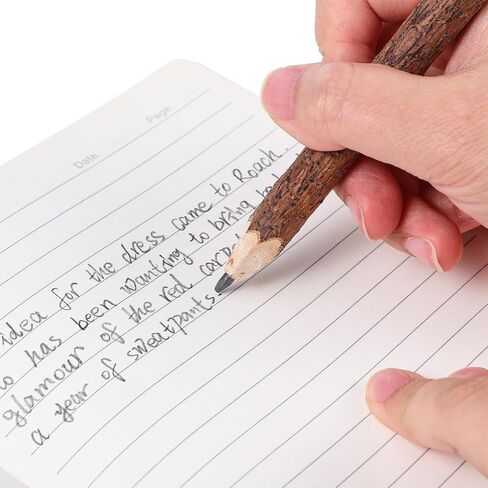 Date. Page.
idea for the dress came to Roach,
o has been wanting to bring
glamour of the red
a year of sweatpants.